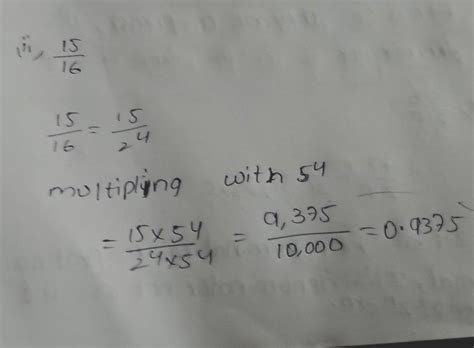 (ii), 15/16
15/16 = 15/2⁴
multipling with 5⁴
= 15×5⁴/2⁴×5⁴ = 9,375/10,000 = 0.9375